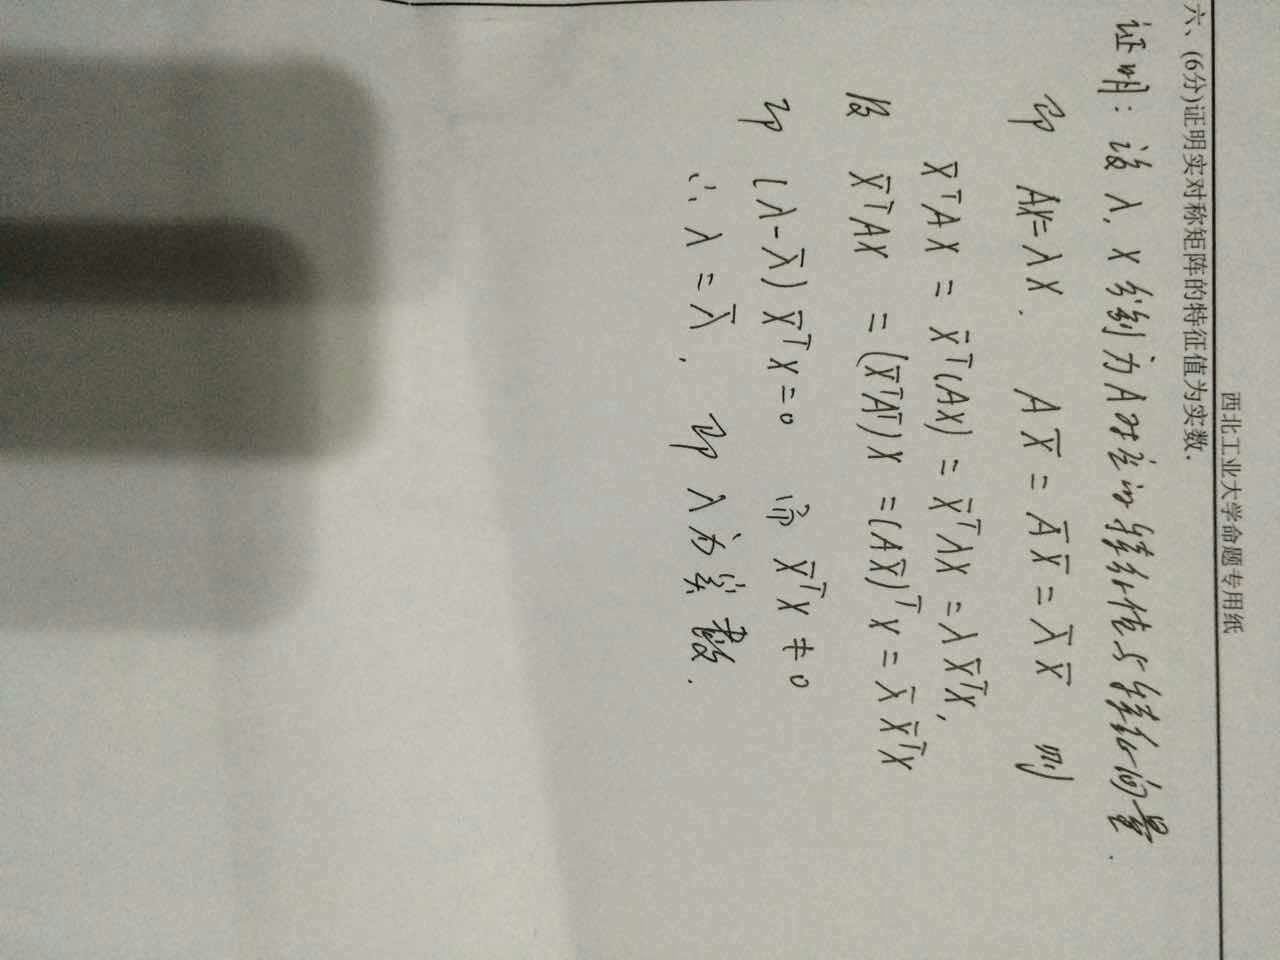 西北工业大学命题专用纸
六、(6分)证明实对称矩阵的特征值为实数.
证明: 设 λ, X 分别为 A 对应的特征值与特征向量.
即 AX=λX. AX̄ = ĀX̄ = λ̄X̄ 则
X̄ᵀAX = X̄ᵀ(AX) = X̄ᵀλX = λX̄ᵀX,
及 X̄ᵀAX = (X̄ᵀAᵀ)X = (AX̄)ᵀX = λ̄X̄ᵀX
即 (λ-λ̄)X̄ᵀX=0 而 X̄ᵀX ≠ 0
∴ λ = λ̄, 即 λ 为实数.